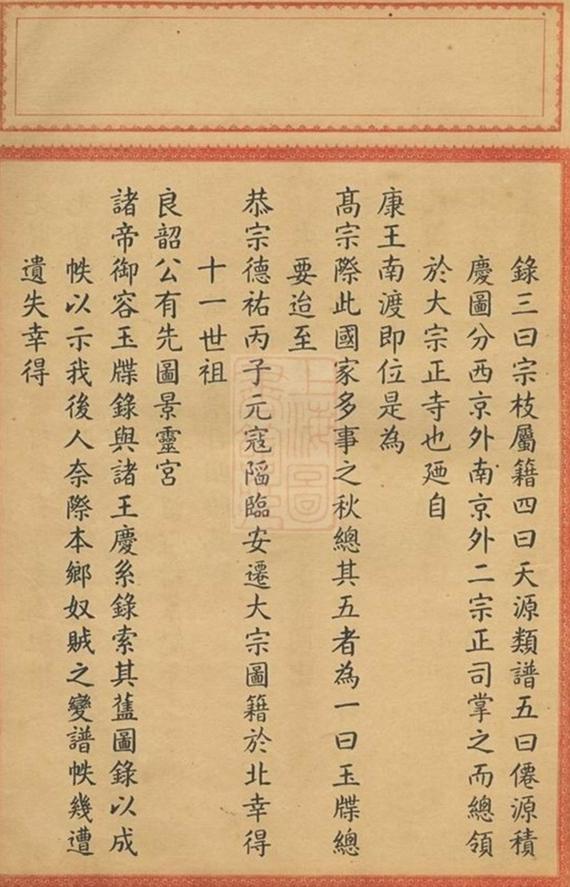 錄三曰宗枝屬籍四曰天源類譜五曰僊源積
慶圖分西京外南京外二宗正司掌之而總領
於大宗正寺也廼自
康王南渡即位是為
髙宗際此國家多事之秋總其五者為一曰玉牒總
要迨至
恭宗德祐丙子元寇陷臨安遷大宗圖籍於北幸得
十一世祖
良韶公有先圖景靈宮
諸帝御容玉牒錄與諸王慶系錄索其舊圖錄以成
帙以示我後人奈際本鄉奴賊之變譜帙幾遭
遺失幸得